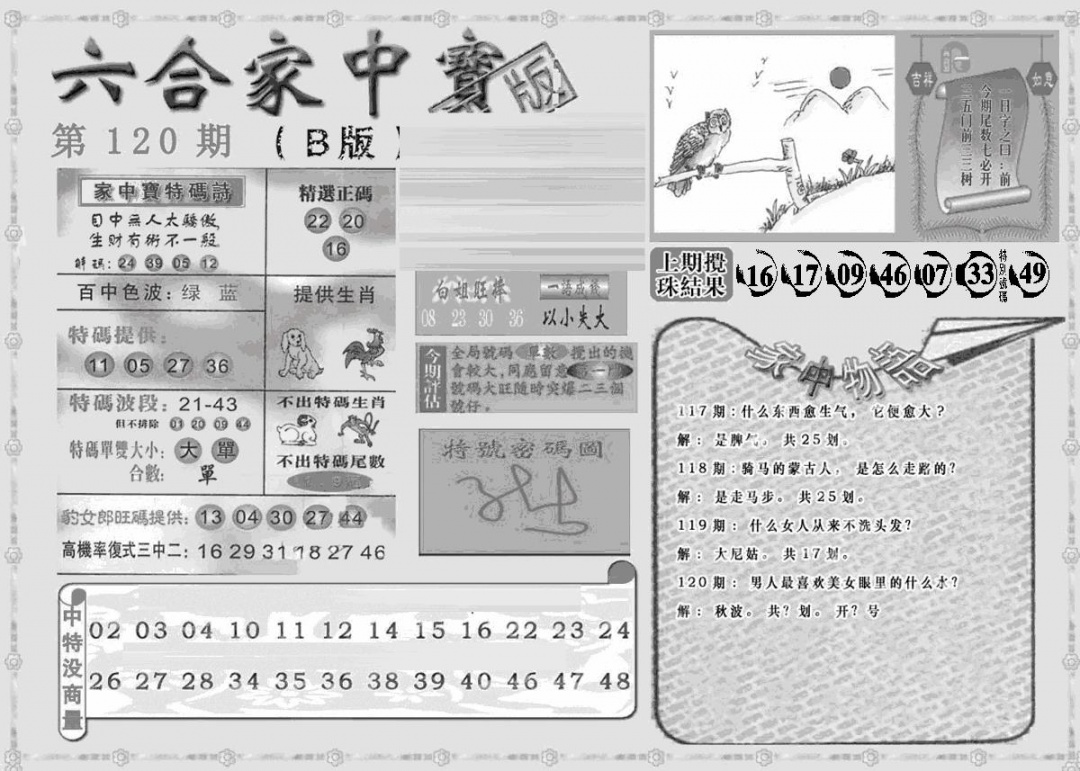 六合家中寶版
第 120 期 （B版）
家中寶特碼詩
目中無人太驕傲,
生财有術不一般
解碼: 24 39 05 12
精選正碼
22 20
16
百中色波: 绿 蓝
提供生肖
特碼提供:
11 05 27 36
特碼波段: 21-43
但不排除 01 20 09 44
特碼單雙大小: 大 單
合數: 單
不出特碼生肖
不出特碼尾數
豹女郎旺碼提供: 13 04 30 27 44
高機率復式三中二: 16 29 31 18 27 46
白姐旺棒
08 23 30 36
一語成谶
以小失大
今期評估
全局號碼 單數 攪出的機
會較大,同處留意 第一門
號碼大旺随時突爆二三個
號仔。
特號密碼圖
吉祥
如意
一日一字之曰:前
今期尾数七必开
二五门前三三树
上期攪珠結果
16 17 09 46 07 33 特别號碼 49
家中物語
117期:什么东西愈生气， 它便愈大?
解: 是脾气。 共25划。
118期:骑马的蒙古人， 是怎么走路的?
解: 是走马步。 共25划。
119期: 什么女人从来不洗头发?
解: 大尼姑。 共17划。
120期: 男人最喜欢美女眼里的什么水?
解: 秋波。 共? 划。 开? 号
中特没商量
02 03 04 10 11 12 14 15 16 22 23 24
26 27 28 34 35 36 38 39 40 46 47 48